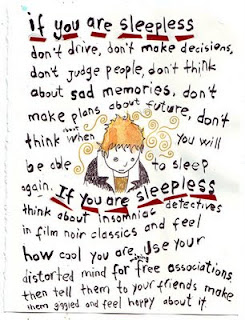 if you are sleepless
don't drive, don't make decisions,
don't judge people, don't think
about sad memories, don't
make plans about future, don't
think about when you will
be able to sleep
again. If you are sleepless
think about insomniac detectives
in film noir classics and feel
how cool you are. Use your
distorted mind for free associations
then tell them to your friends make
them giggled and feel happy about it.